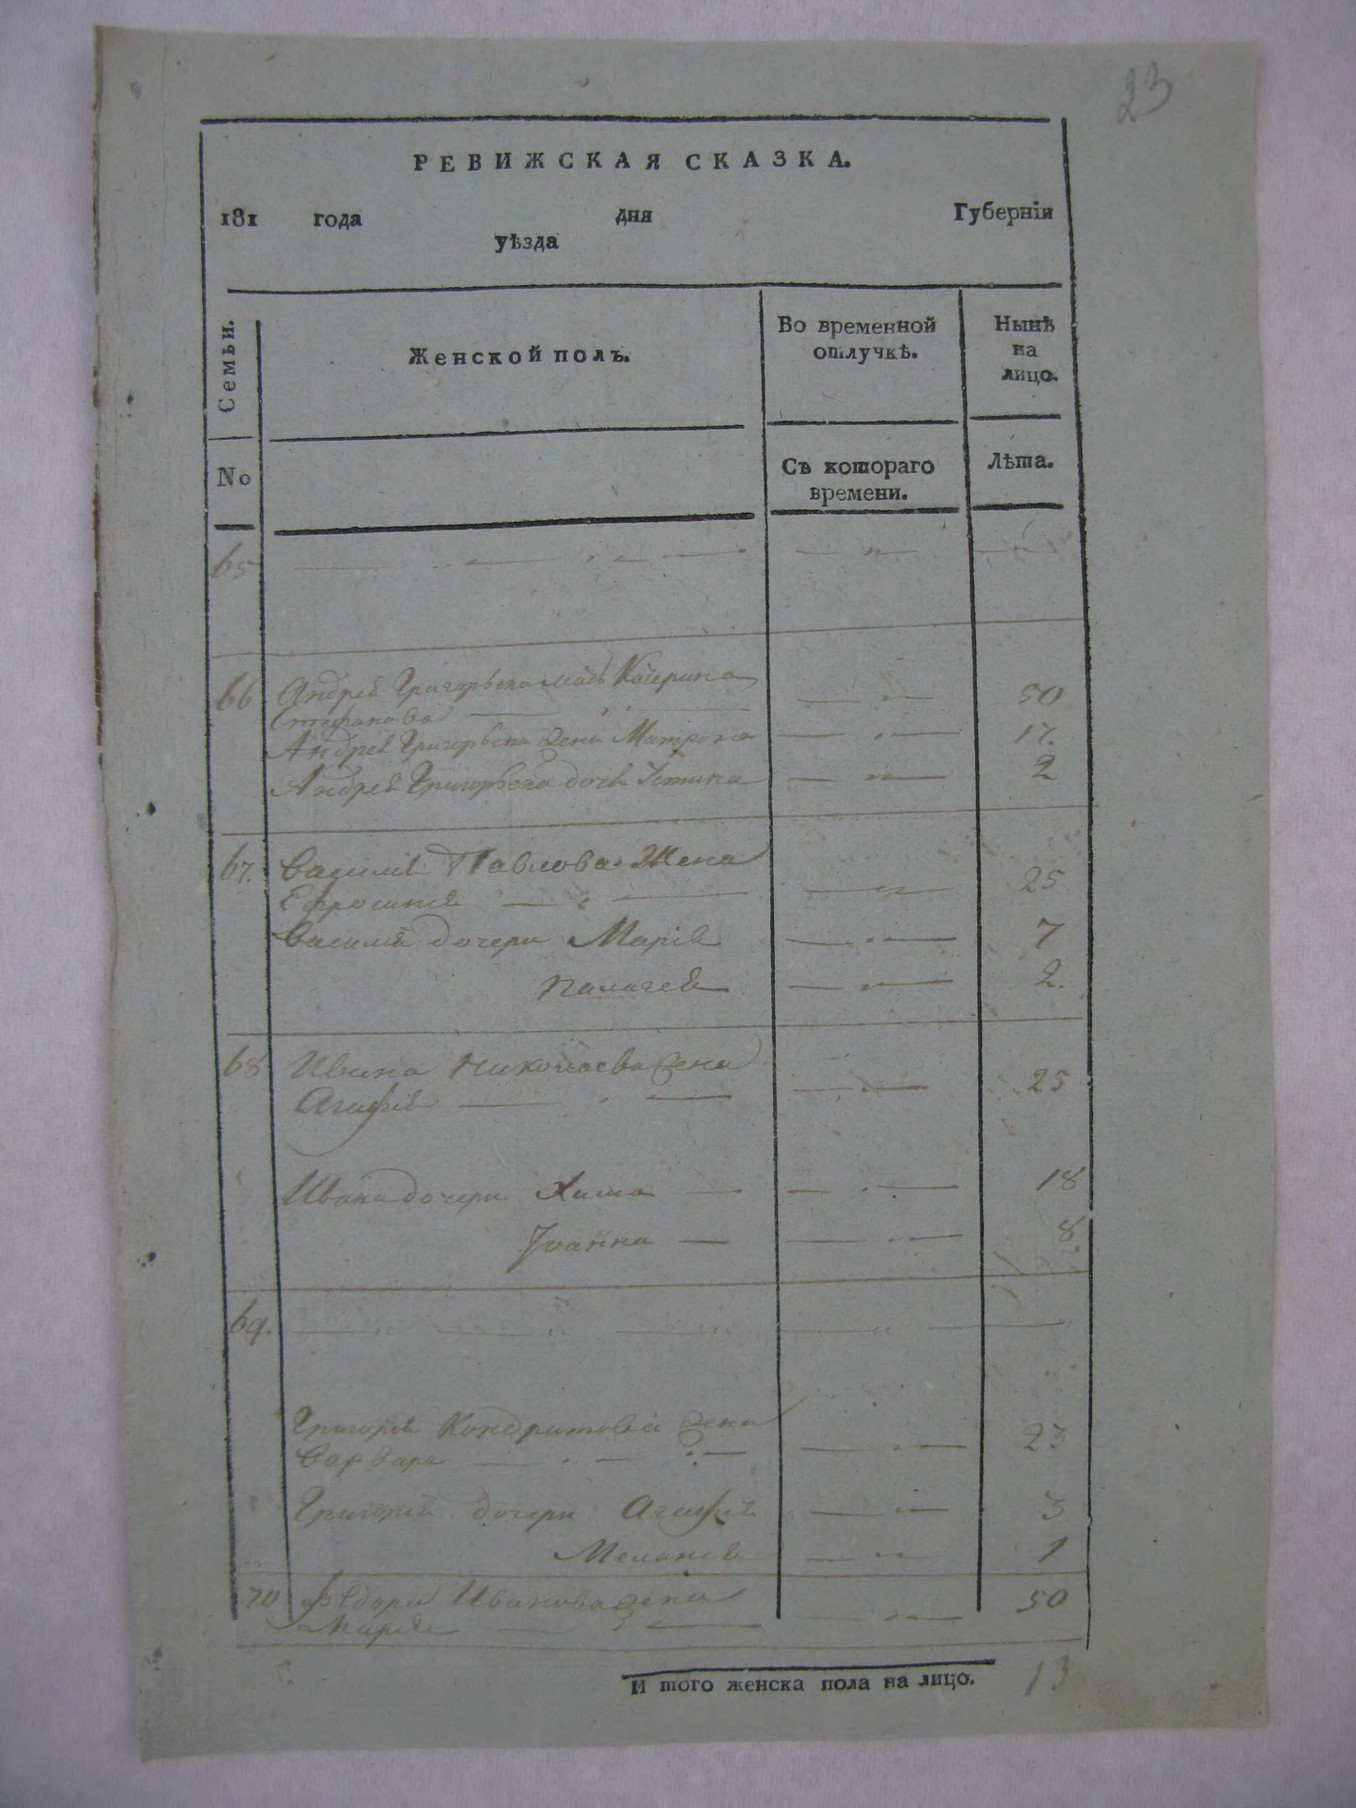 23
РЕВИЖСКАЯ СКАЗКА.
181 года дня Губерніи
уѣзда
Семьи.
Женской полъ.
Во временной отлучкѣ.
Нынѣ на лицо.
No
Съ котораго времени.
Лѣта.
65
66 Андрей Григорьева мать Катерина
Стефанова 50
Андрей Григорьева жена Матрона 17.
Андрей Григорьева дочь Устина 2
67. Василія Павлова Жена
Ефросинія 25
Василія дочери Марія 7
Палагея 2.
68 Ивана Николаева жена
Агафія 25
Ивана дочери 18
Іоанна 8
69.
Григорія Кондратова жена
Варвара 23
Григорія дочери Агафія 3
Меланія 1
70 Федора Иванова жена 50
Марія
И того женска пола на лицо. 13